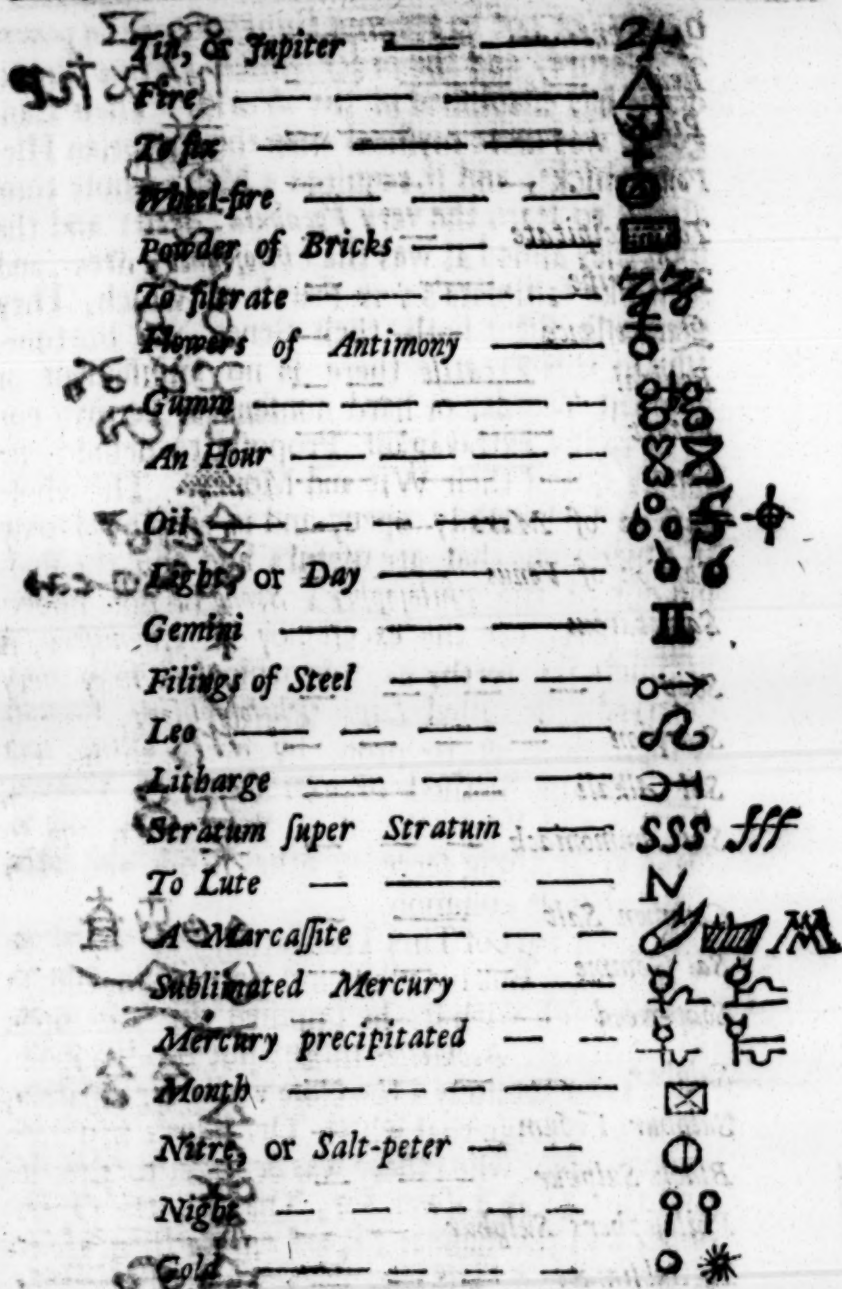 Tin, or Jupiter
Fire
To fix
Wheel-fire
Powder of Bricks
To filtrate
Flowers of Antimony
Gumm
An Hour
Oil
Light, or Day
Gemini
Filings of Steel
Leo
Litharge
Stratum ſuper Stratum SSS ſſſ
To Lute
A Marcaſſite
Sublimated Mercury
Mercury precipitated
Month
Nitre, or Salt-peter
Night
Gold